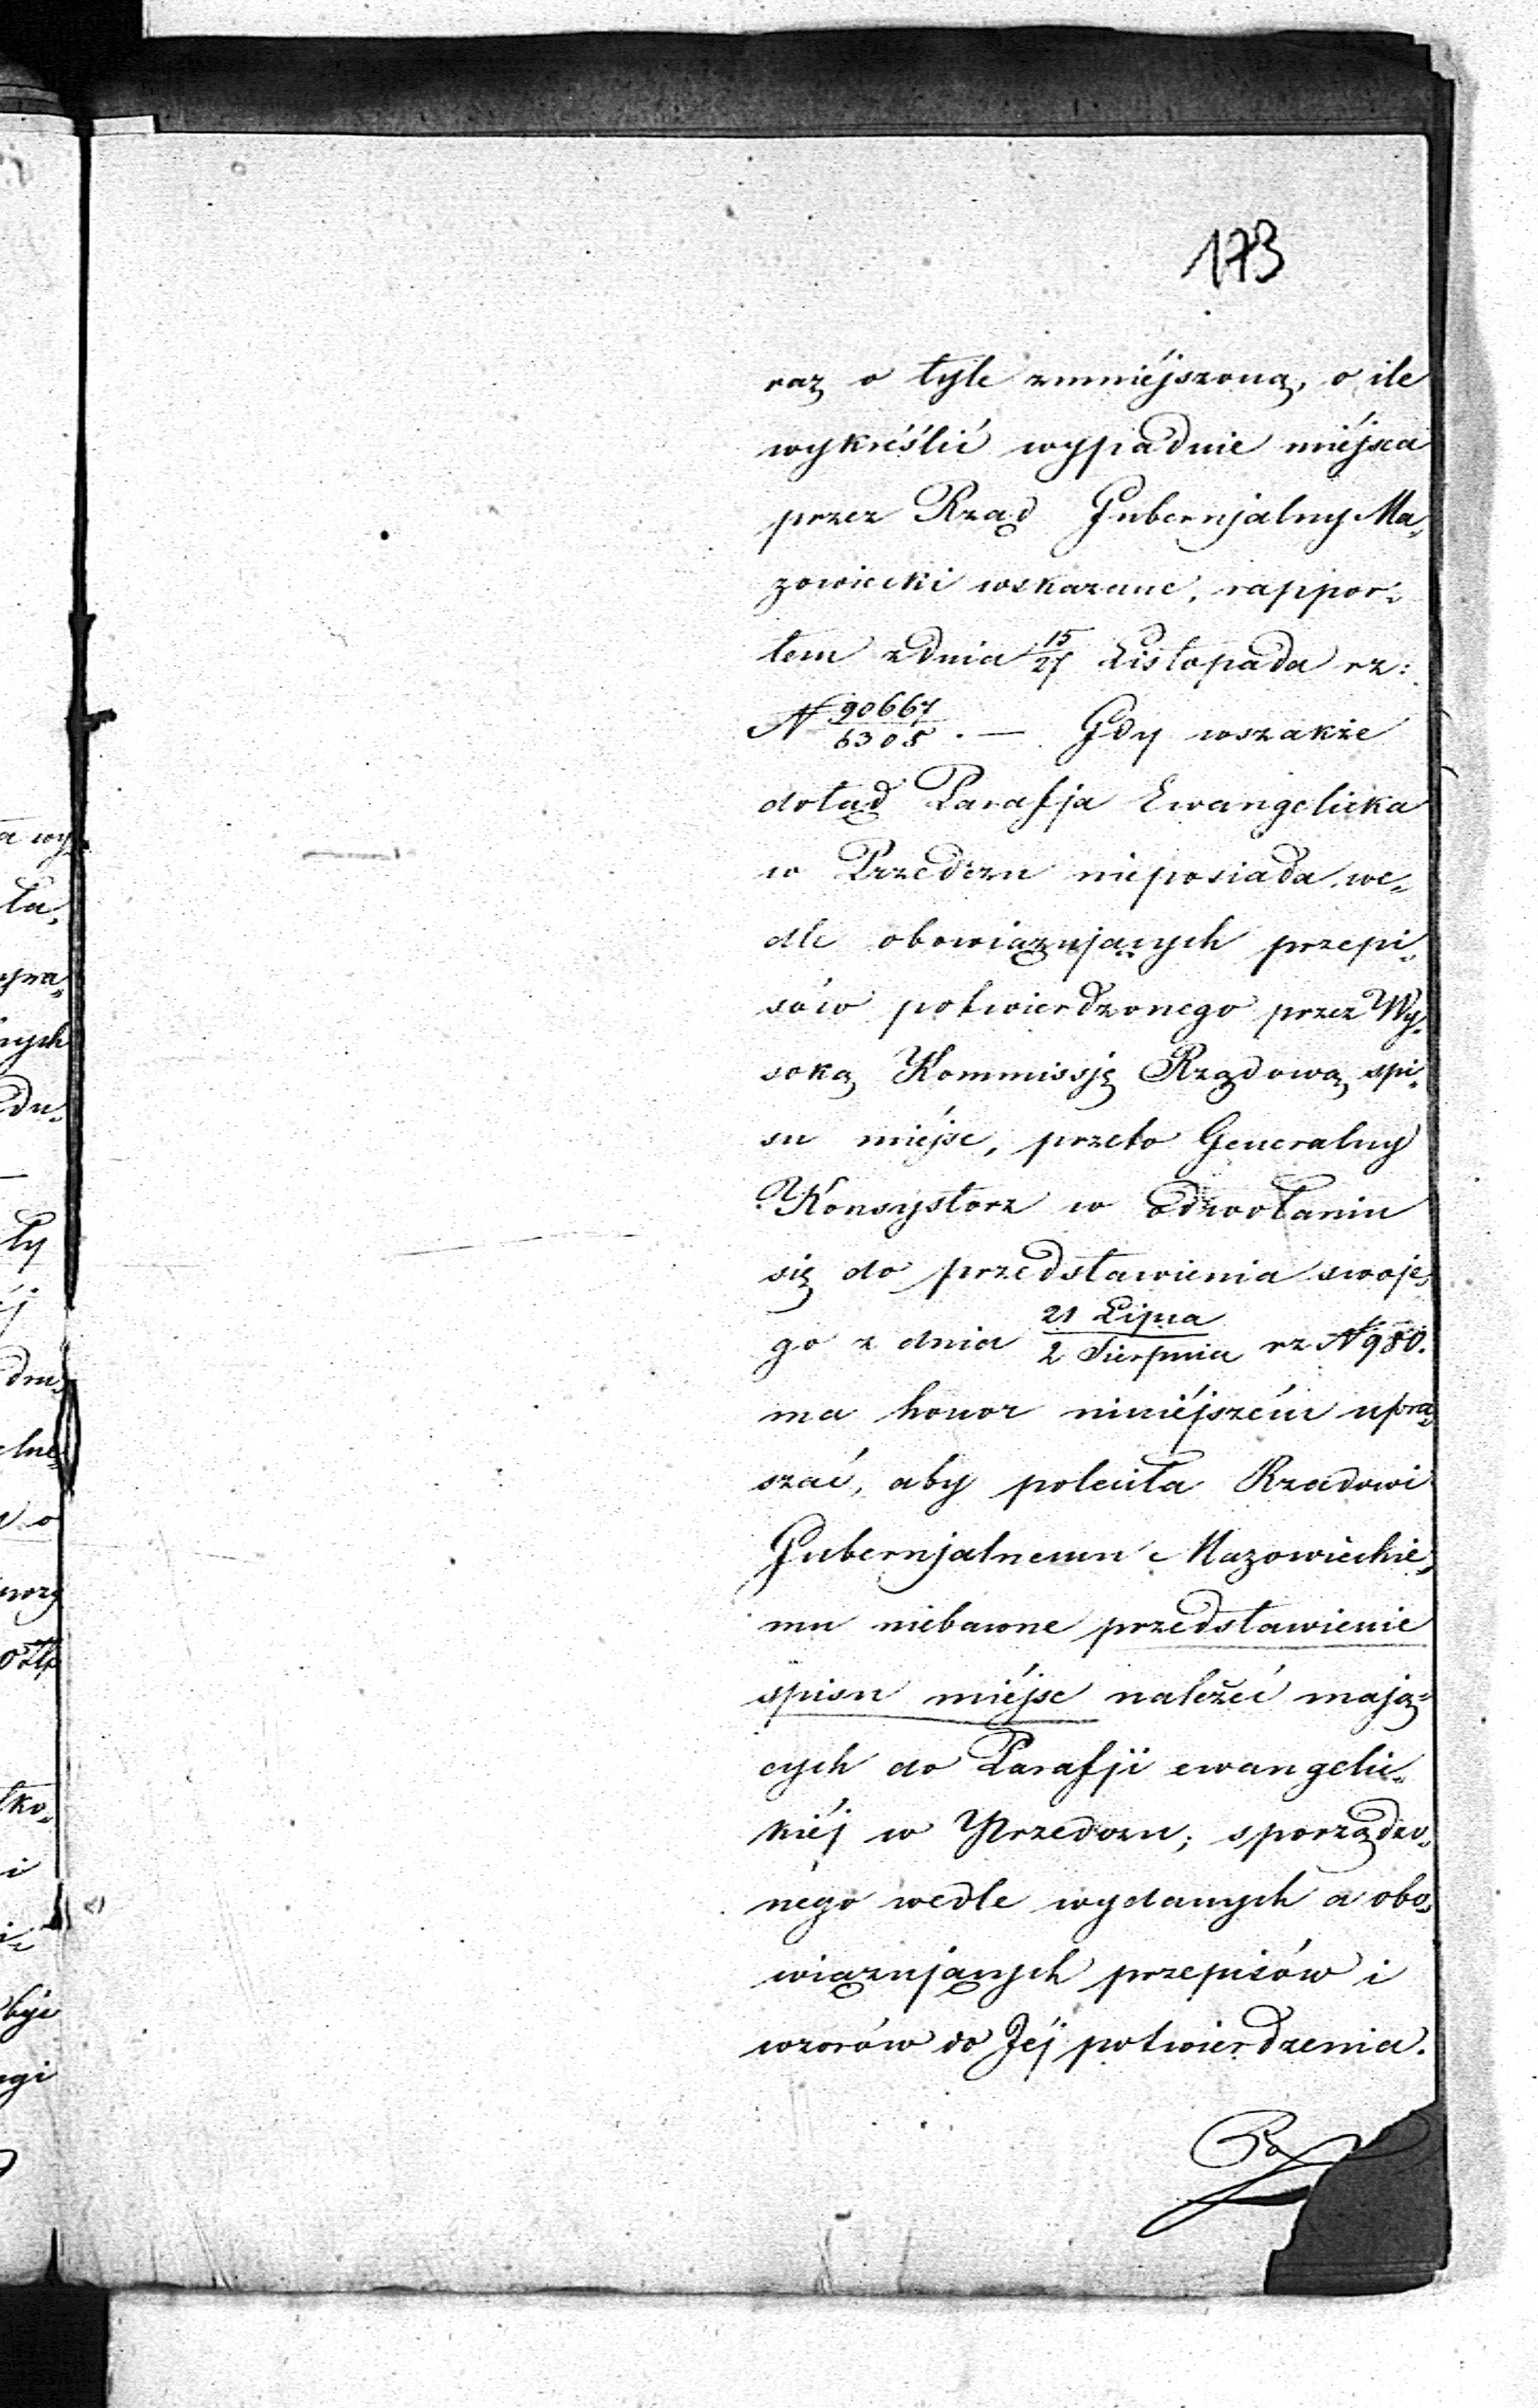 173
raz o tyle zmniéjszoną, o ile
wykréślić wypadnie miéjsca
przez Rząd Gubernjalny Ma„
zowiecki wskazane, rappor„
tem z dnia 15/27 Listopada rz:
N 90667/6305 . — Gdy wszakże
dotąd Parafja Ewangelicka
w Przedczu nieposiada, we„
dle obowiązujących przepi„
sów potwierdzonego przez Wy„
soką Kommissję Rządową spi„
su miéjsc, przeto Generalny
Konsystorz w odwołaniu
się do przedstawienia swoje„
go z dnia 21 Lipca/2 Sierpnia rz N 980.
ma honor niniéjszém upra„
szać, aby poleciła Rządowi
Gubernjalnemu Mazowieckie„
mu niebawne przedstawienie
spisu miéjsc należeć mają„
cych do Parafji ewangelic„
kiéj w Przedczu; sporządzo„
nego wedle wydanych a obo„
wiązujących przepisów i
wzorów do Jéj potwierdzenia.